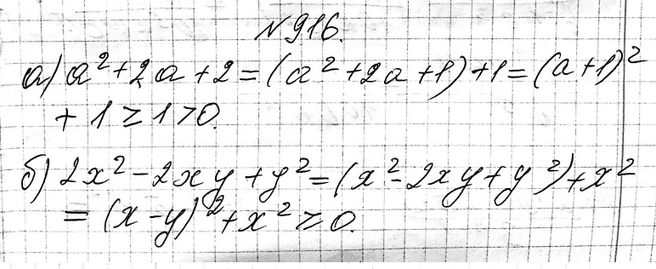 №916.
а) a² + 2a + 2 = (a² + 2a + 1) + 1 = (a + 1)²
+ 1 ≥ 1 > 0.
б) 2x² - 2xy + y² = (x² - 2xy + y²) + x²
= (x - y)² + x² ≥ 0.